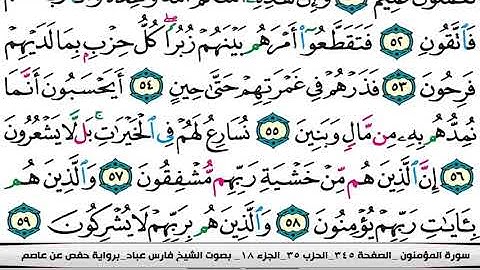 فَٱتَّقُونِ ٥٢ فَتَقَطَّعُوٓا۟ أَمْرَهُم بَيْنَهُمْ زُبُرًۭا ۖ كُلُّ حِزْبٍۭ بِمَا لَدَيْهِمْ
فَرِحُونَ ٥٣ فَذَرْهُمْ فِى غَمْرَتِهِمْ حَتَّىٰ حِينٍ ٥٤ أَيَحْسَبُونَ أَنَّمَا
نُمِدُّهُم بِهِۦ مِن مَّالٍۢ وَبَنِينَ ٥٥ نُسَارِعُ لَهُمْ فِى ٱلْخَيْرَٰتِ ۚ بَل لَّا يَشْعُرُونَ
٥٦ إِنَّ ٱلَّذِينَ هُم مِّنْ خَشْيَةِ رَبِّهِم مُّشْفِقُونَ ٥٧ وَٱلَّذِينَ هُم
بِـَٔايَـٰتِ رَبِّهِمْ يُؤْمِنُونَ ٥٨ وَٱلَّذِينَ هُم بِرَبِّهِمْ لَا يُشْرِكُونَ ٥٩
سورة المؤمنون_الصفحة ٣٤٥_الحزب ٣٥_الجزء ١٨_ بصوت الشيخ فارس عباد_برواية حفص عن عاصم